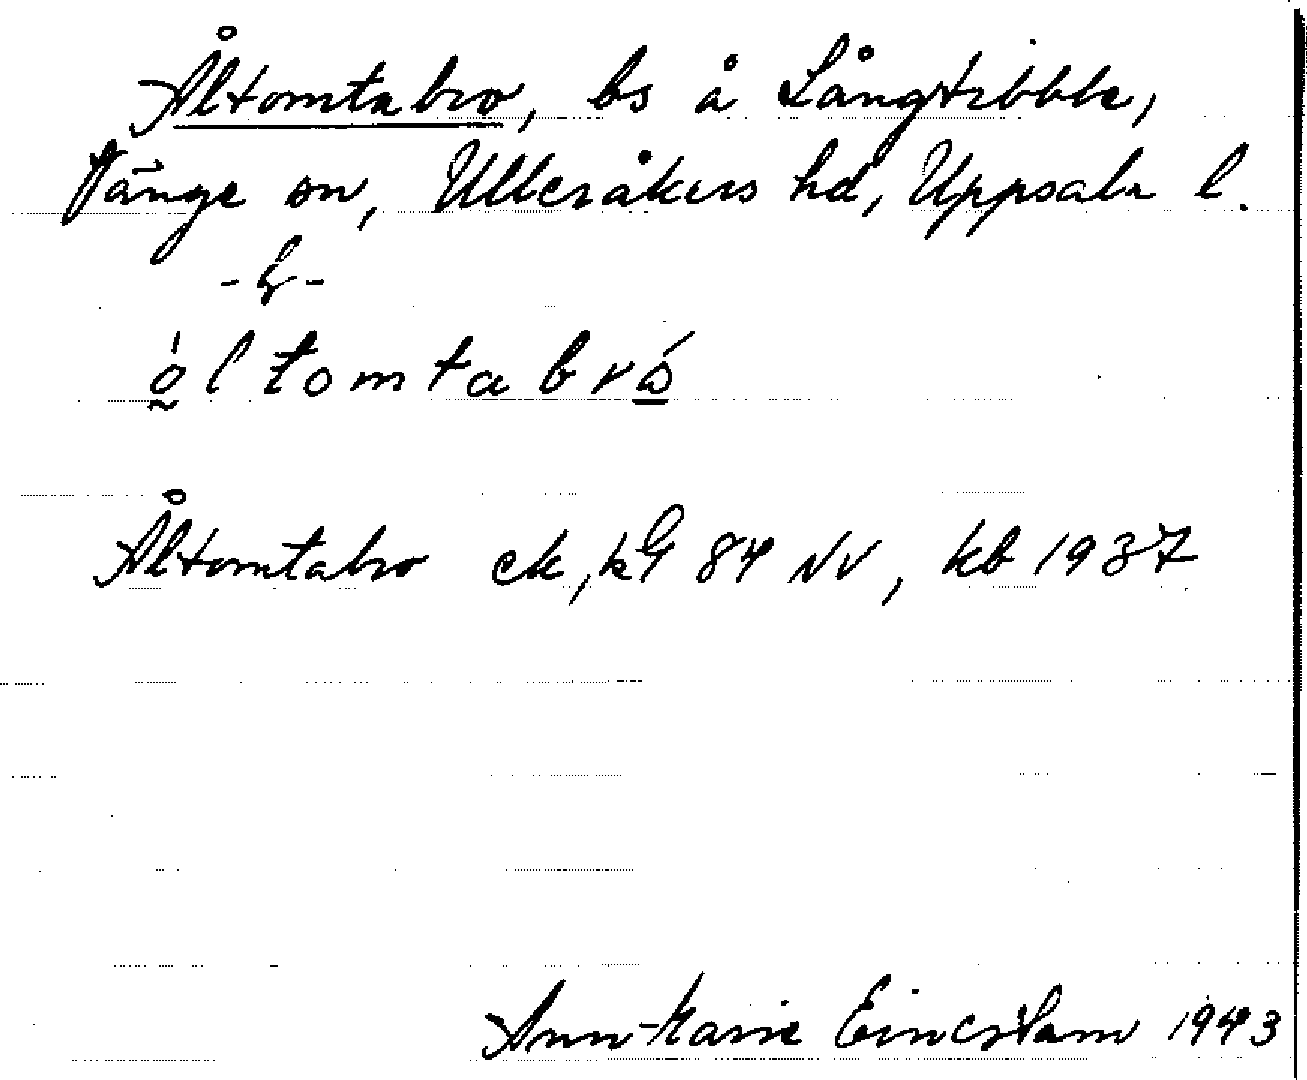 Åltomtabro, bs å Långtibble,
Vänge sn, Ulleråkers hd, Uppsala l.
åltomtabro
Åltomtabro ek, kG 84 NV, kb 1937
Ann-Marie Einerstam 1943